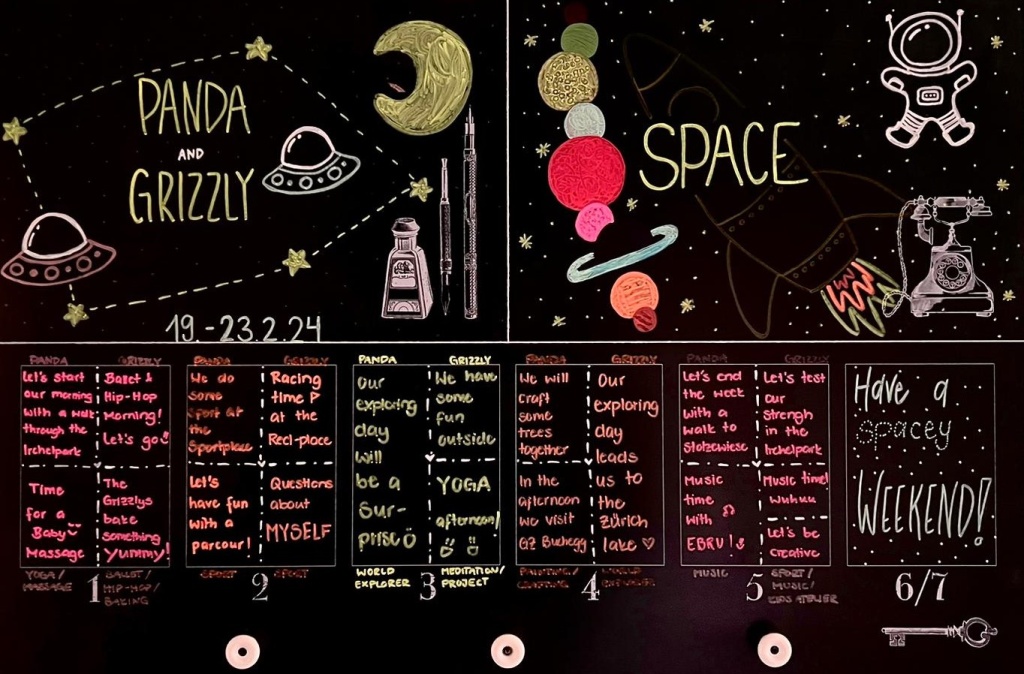 PANDA
AND
GRIZZLY
19.-23.2.24
SPACE
PANDA
GRIZZLY
Let's start
our morning
with a walk
through the
Irchelpark
Ballet &
Hip-Hop
Morning!
Let's go!
Time
for a
Baby
Massage
The
Grizzlys
bake
something
Yummy!
YOGA/
MASSAGE
1
BALLET/
HIP-HOP/
BAKING
PANDA
GRIZZLY
We do
some
sport at
the
Sportplace
Racing
time P
at the
Red-place
Let's
have fun
with a
parcour!
Questions
about
MYSELF
SPORT
2
SPORT
PANDA
GRIZZLY
Our
exploring
day
will
be a
Sur-
prise
We have
some
fun
outside
YOGA
afternoon!
WORLD
EXPLORER
3
MEDITATION/
PROJECT
PANDA
GRIZZLY
We will
craft
some
trees
together
In the
afternoon
we visit
GZ Buchegg
Our
exploring
day
leads
us to
the
Zürich
lake ♡
PAINTING/
CRAFTING
4
WORLD
EXPLORER
PANDA
GRIZZLY
Let's end
the week
with a
walk to
Stolzewiese
Let's test
our
strengh
in the
Irchelpark
Music
time
with
EBRU!
Music time!
Wuhuu
Let's be
creative
MUSIC
5
SPORT/
MUSIC/
KIDS ATELIER
Have a
spacey
WEEKEND!
6/7